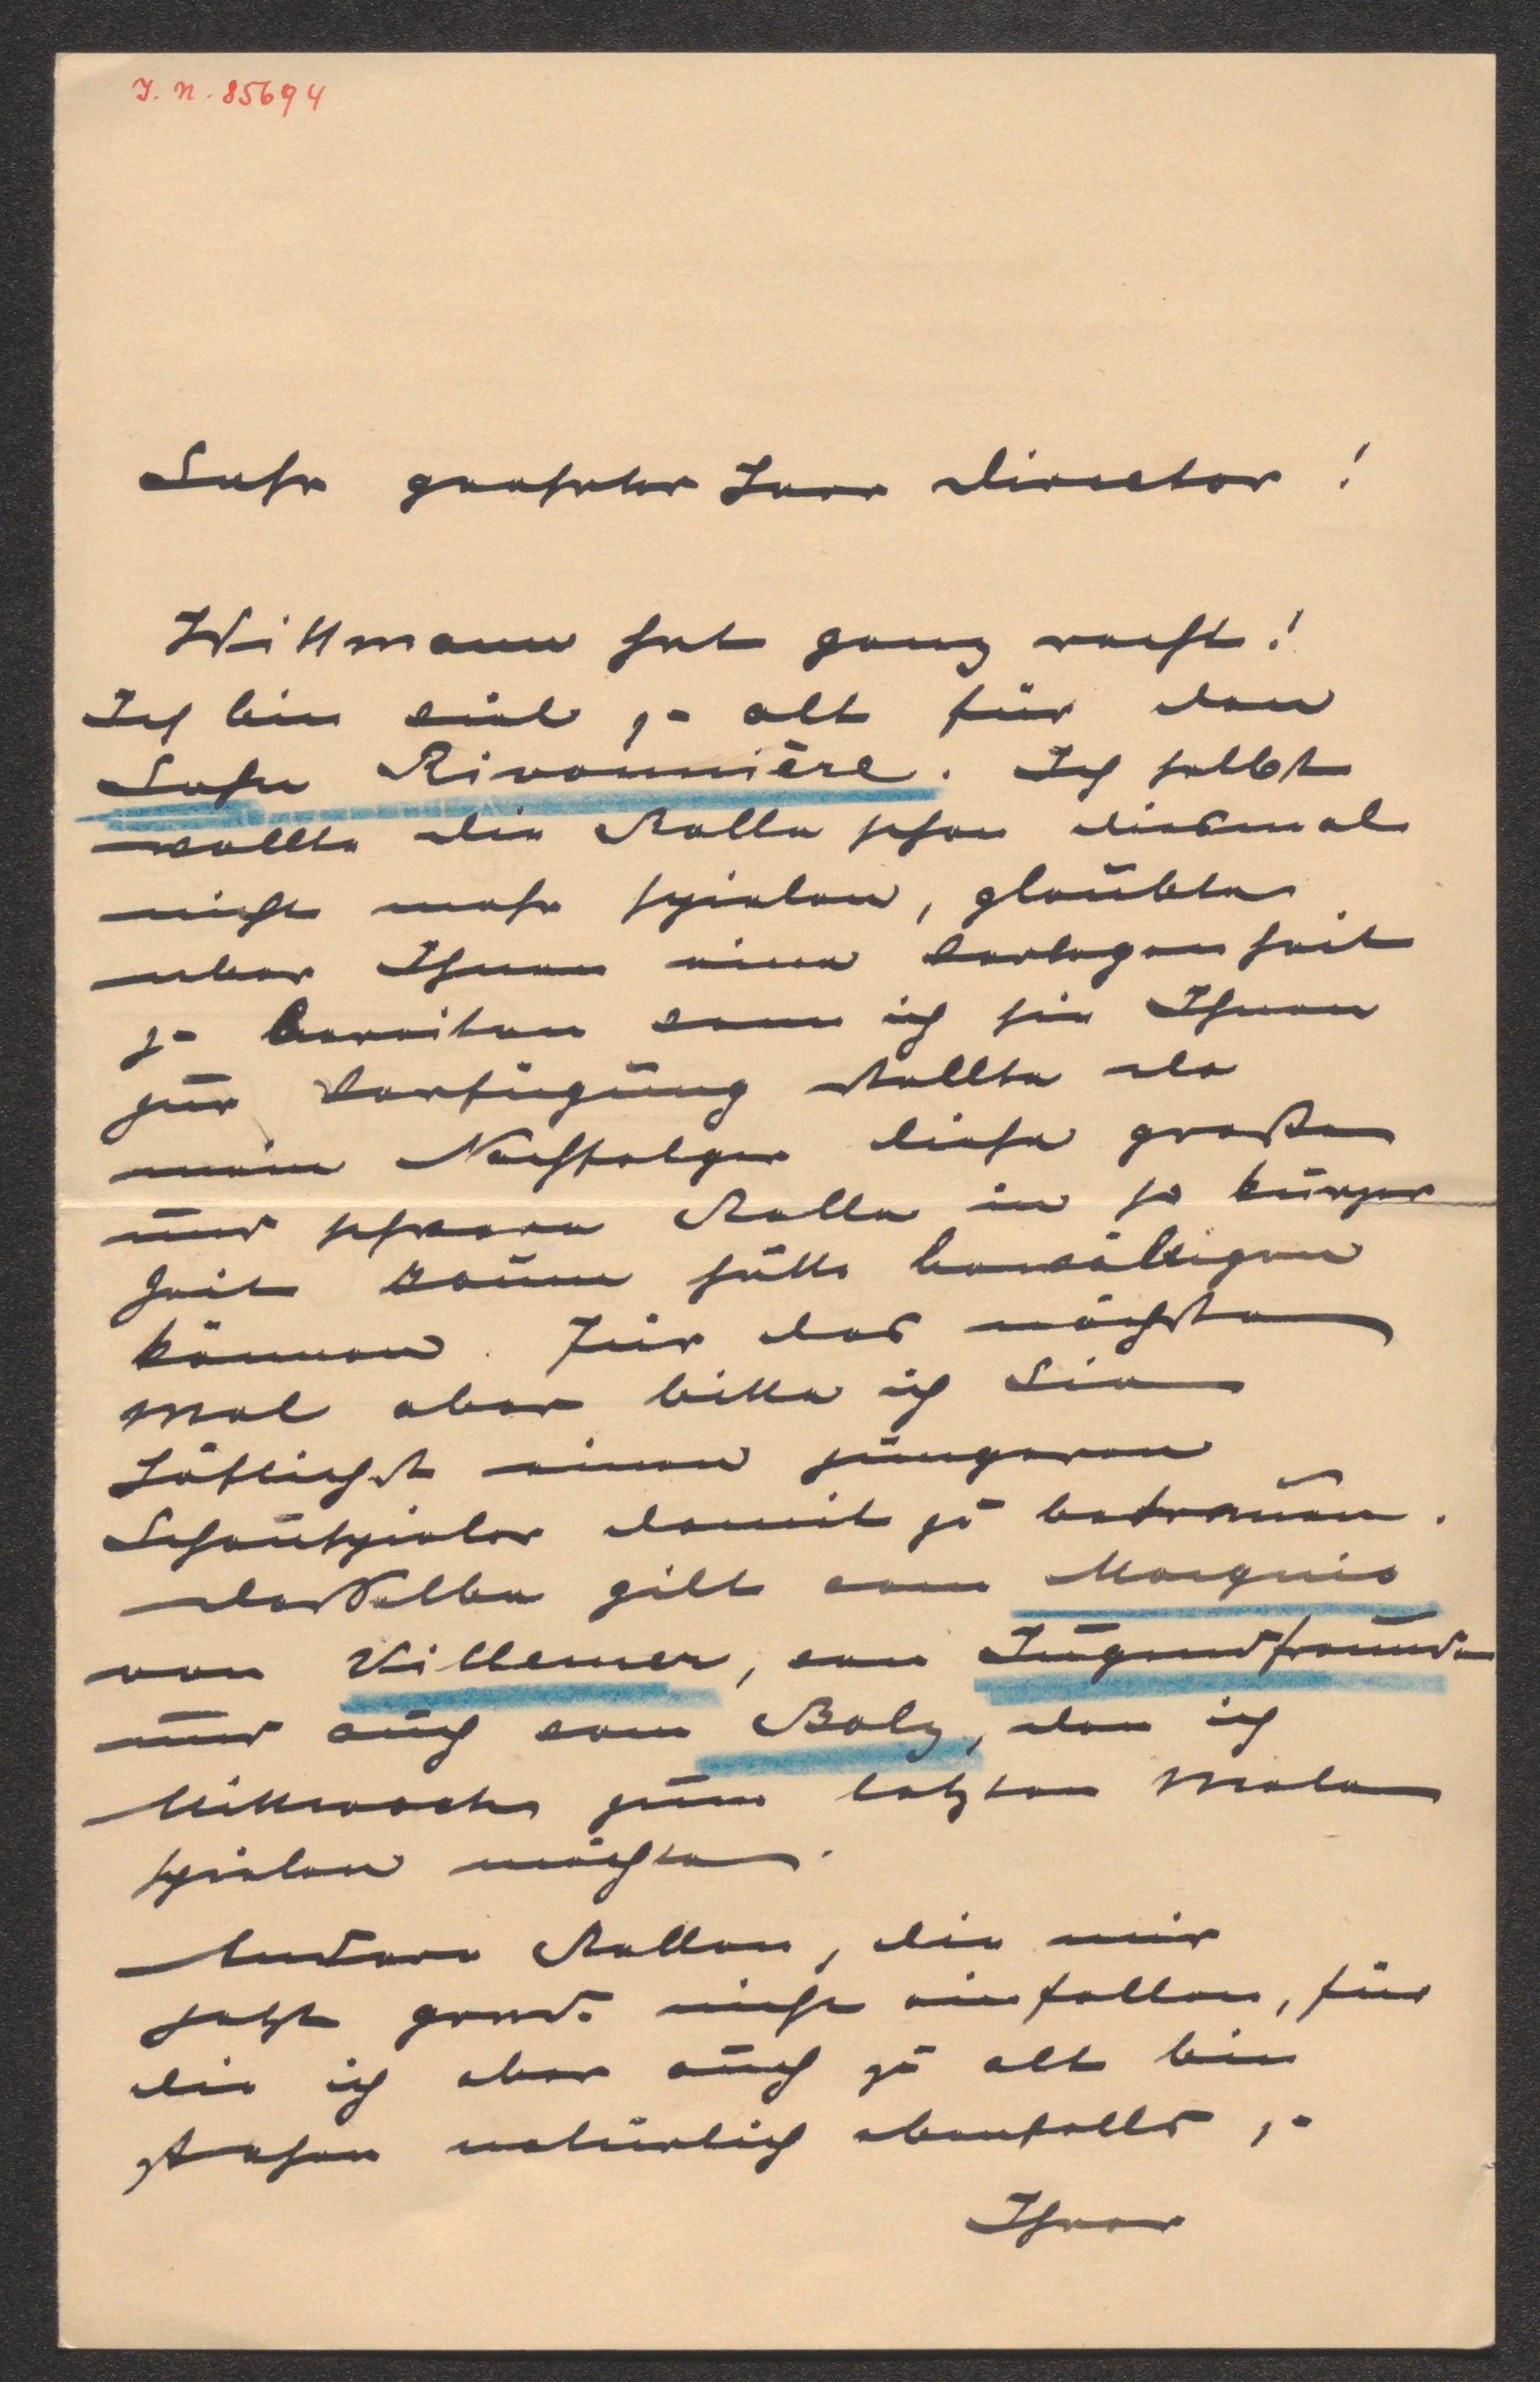 J. N. 85694
Sehr geehrter Herr Director!
Wittmann hat ganz recht!
Ich bin viel zu alt für den
Sohn Rivonnière. Ich selbst
wollte die Rolle schon diesmal
nicht mehr spielen, glaubte
aber Ihnen eine Verlegenheit
zu bereiten wenn ich sie Ihnen
zur Verfügung stellte da
mein Nachfolger diese große
und schwere Rolle in so kurzer
Zeit kaum hätte bewältigen
können. Für das nächste
Mal aber bitte ich Sie
höflichst einen jüngeren
Schauspieler damit zu betrauen.
Dasselbe gilt vom Marquis
von Villemer, von Jugendfreunde
und auch vom Bolz, den ich
Mittwoch zum letzten Male
spielen möchte.
Andere Rollen, die mir
jetzt grad. nicht einfallen, für
die ich aber auch zu alt bin
stehen natürlich ebenfalls zu
Ihrer